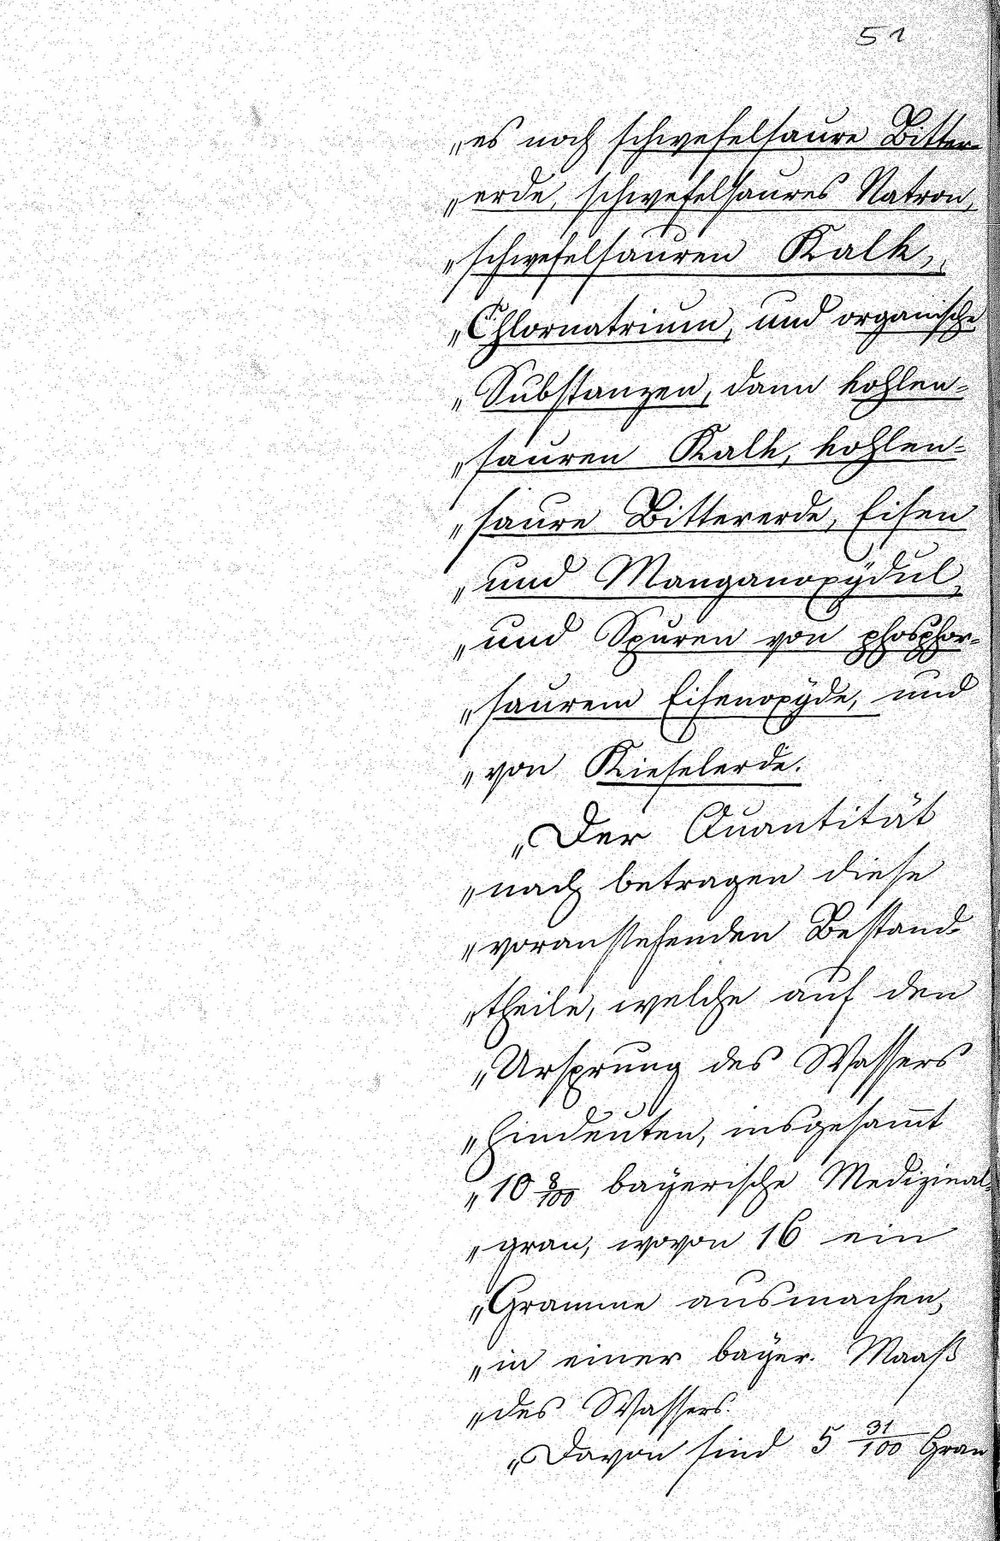 51
„es noch schwefelsaure Bitter-
„erde, schwefelsaures Natron,
„schwefelsauren Kalk,
„Chlornatrium, und organische
„Substanzen, dann kohlen=
„sauren Kalk, kohlen=
„saure Bittererde, Eisen
„und Manganoxÿdul,
„und Spuren von phosphor=
„saurem Eisenoxÿde, und
„von Kieselerde.
„Der Quantität
„nach betragen diese
„voranstehenden Bestand-
„theile, welche auf den
„Ursprung des Wassers
„hindeuten, insgesam̅t
„10 8/100 bayerische Medizinal=
„gran, wovon 16 ein
„Gramme ausmachen,
„in einer bayer. Maaß
„des Wassers.
„Davon sind 5 31/100 Gran